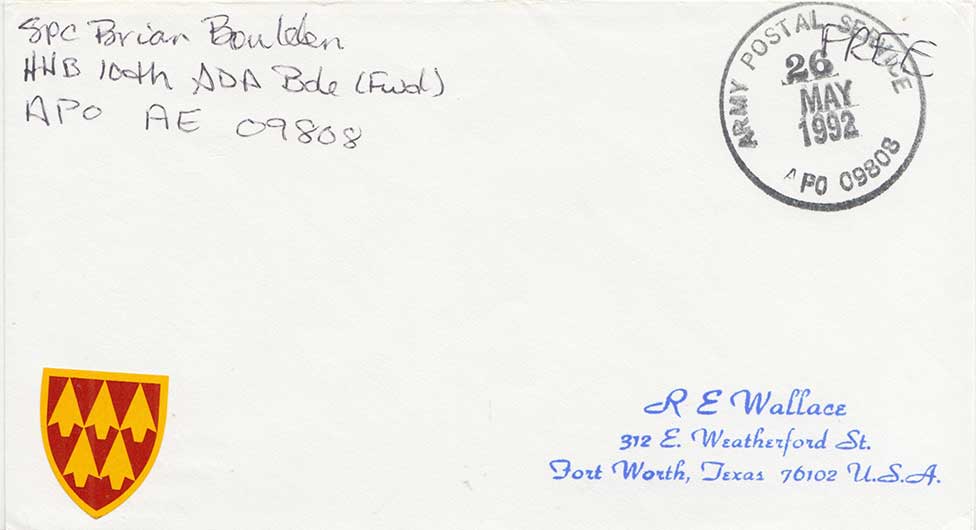 Spc Brian Boulden
HHB 100th ADA Bde (Fwd)
APO AE 09808
FREE
ARMY POSTAL SERVICE
26
MAY
1992
APO 09808
R E Wallace
312 E. Weatherford St.
Fort Worth, Texas 76102 U.S.A.